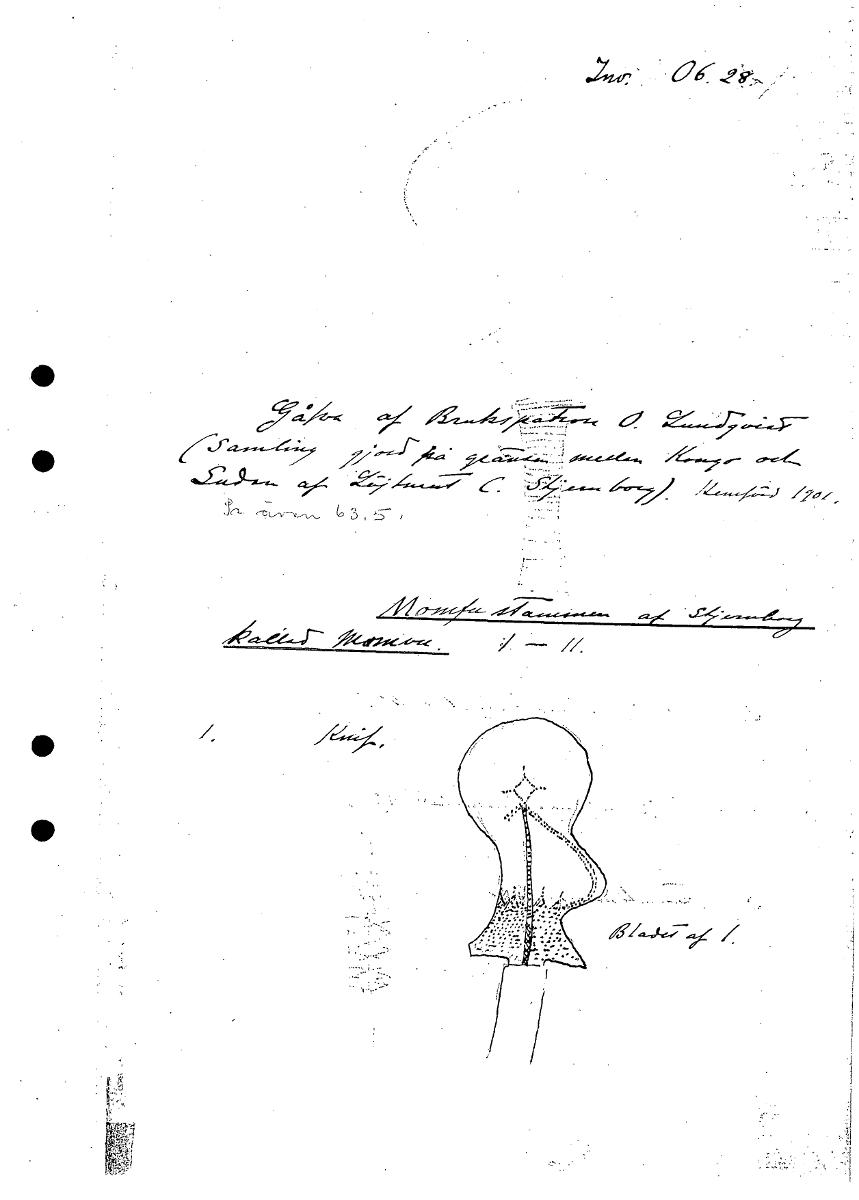 Inv. 06.28.
Gåfva af Brukspatron O. Lundqvist
(Samling gjord på gränsen mellan Kongo och
Sudan af Löjtnant C. Stjernborg). Hemförd 1901.
Se även 63.5.
Momfu stammen af Stjernborg
kallad Momvu. 1 — 11.
1. Knif.
Bladet af 1.